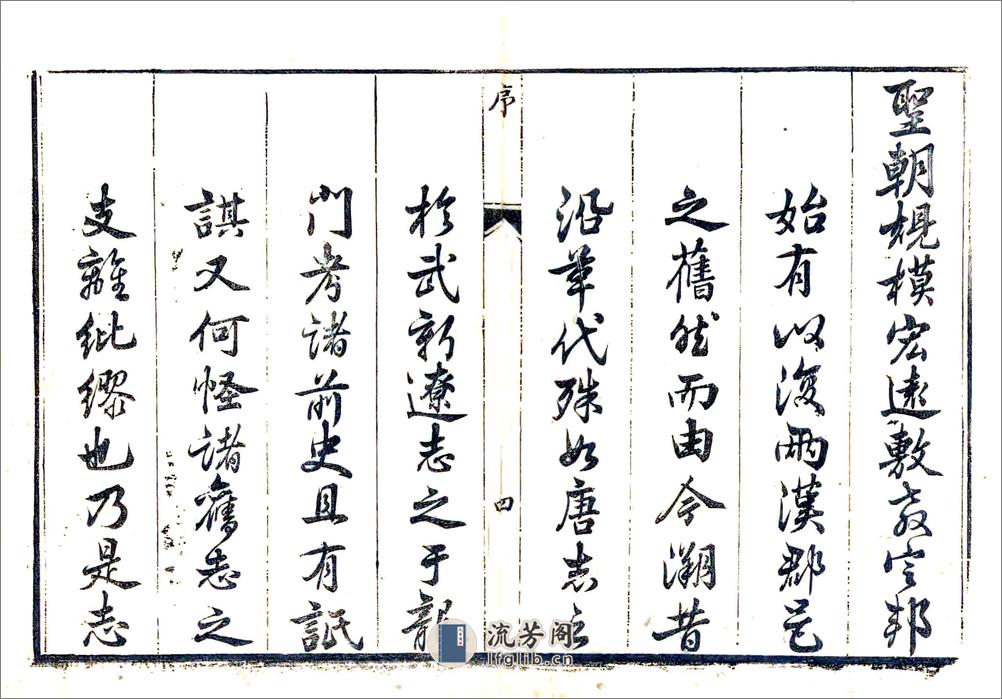 聖朝規模宏遠敷教定邦
始有以復兩漢郡邑
之舊然而由今溯昔
沿革代殊如唐志之
序
四
於武新遼志之于龍
門考諸前史且有詆
諆又何怪諸舊志之
支離紕繆也乃是志
流芳阁
lfglib.cn